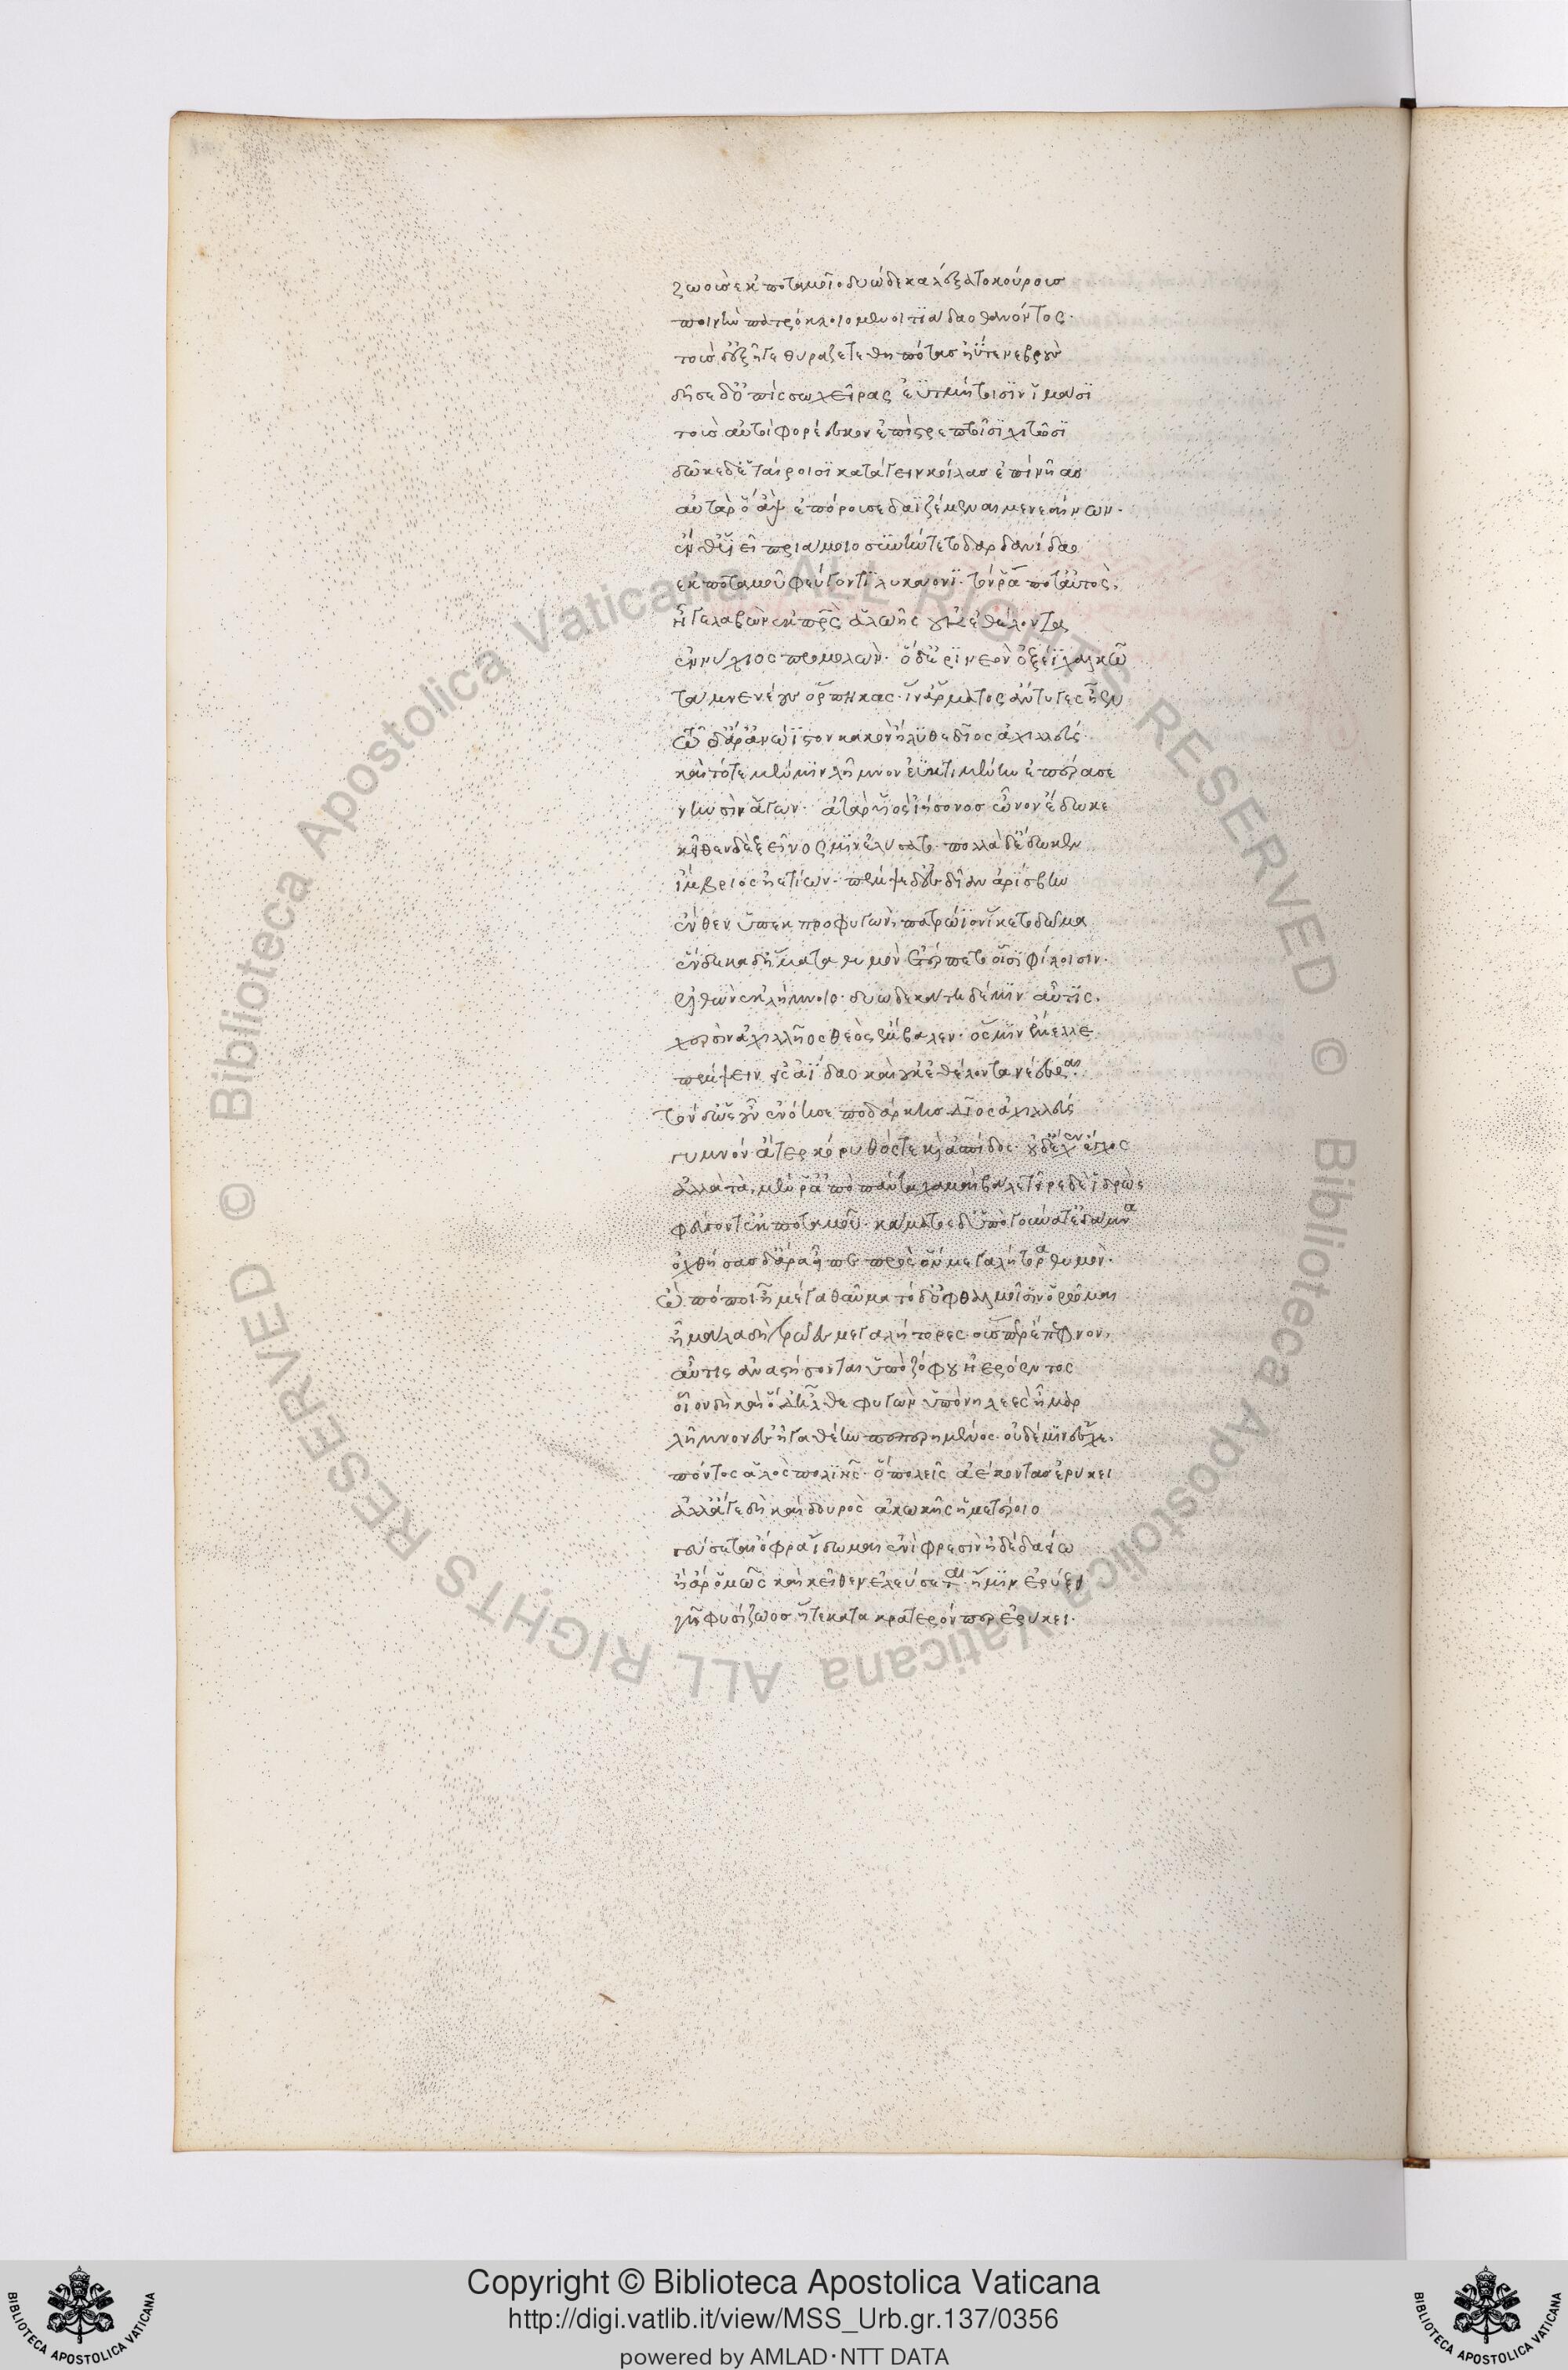 ζωοὺς ἐκ ποταμοῖο δυώδεκα λέξατο κούρους
ποινὴν πατρόκλοιο μενοιτιάδαο θανόντος.
τοὺς ἐξῆγε θύραζε τεθηπότας ἠΰτε νεβρούς
δῆσε δ' ὀπίσσω χεῖρας ἐϋτμήτοισιν ἱμᾶσι
τοὺς αὐτοὶ φορέεσκον ἐπὶ στρεπτοῖσι χιτῶσι
δῶκε δ' ἑταίροισι κατάγειν κοίλας ἐπὶ νῆας
αὐτὰρ ὁ ἂψ ἐπόρουσε δαϊζέμεναι μενεαίνων.
ἔνθ' υἷει πριάμοιο συνήντετο δαρδανίδαο
ἐκ ποταμοῦ φεύγοντι λυκάονι. τόν ῥά ποτ' αὐτὸς,
ἦγε λαβὼν ἐκ πρς ἀλωῆς οὐκ ἐθέλοντα
ἐννύχιος προμολών. ὁ δ' ἐρινεὸν ὀξέϊ χαλκῷ
τάμνε νέους ὄρπηκας. ἵν' ἅρματος ἄντυγες εἶεν
τῷ δ' ἄρ' ἀνώϊστον κακὸν ἤλυθε δῖος ἀχιλλεύς.
καὶ τότε μέν μιν λῆμνον ἐϋκτιμένην ἐπέρασε
νηυσὶν ἄγων. ἀτὰρ υἱὸς ἰήσονος ὦνον ἔδωκε
κεῖθεν δὲ ξεῖνός μιν ἐλύσατο. πολλὰ δ' ἔδωκεν
ἴμβριος ἠετίων. πέμψε δ' ἐς δῖαν ἀρίσβην
ἔνθεν ὑπεκπροφυγὼν, πατρώϊον ἵκετο δῶμα
ἕνδεκα δ' ἤματα θυμὸν ἐτέρπετο οἷσι φίλοισιν.
ἐλθὼν ἐκ λήμνοιο. δυωδεκάτῃ δέ μιν αὖτις.
χερσὶν ἀχιλλῆος θεὸς ἔμβαλεν. ὅς μιν ἔμελλε
πέμψειν εἰς ἀΐδαο καὶ οὐκ ἐθέλοντα νέεσθαι.
τὸν δ' ὡς οὖν ἐνόησε ποδάρκης δῖος ἀχιλλεύς
γυμνόν ἄτερ κόρυθός τε κ' ἀσπίδος. οὐδ' ἔχεν ἔγχος
ἀλλὰ τὰ, μέν ῥ' ἀπὸ πάντα χαμαὶ βάλε τεῖρε δ' ἱδρὼς
φεύγοντ' ἐκ ποταμοῦ. κάματος δ' ὑπὸ γούνατ' ἐδάμνα
ὀχθήσας δ' ἄρα εἶπε πρὸς ὃν μεγαλήτορα θυμόν.
ὢ πόποι ἦ μέγα θαῦμα τόδ' ὀφθαλμοῖσιν ὁρῶμαι
ἦ μάλα δὴ τρῶες μεγαλήτορες. οὕσπερ ἔπεφνον,
αὖτις ἀναστήσονται ὑπὸ ζόφου ἠερόεντος
οἷον δὴ καὶ ὅδ' ἦλθε φυγὼν ὑπὸ νηλεὲς ἦμαρ
λῆμνον ἐς ἠγαθέην πεπερημένος. οὐδέ μιν ἔσχε.
πόντος ἁλὸς πολιῆς. ὃ πολεῖς ἀέκοντας ἐρύκει
ἀλλ' ἄγε δὴ καὶ δουρὸς ἀκωκῆς ἡμετέροιο
γεύσεται ὄφρα ἴδωμαι ἐνὶ φρεσὶν ἠδὲ δαείω
ἢ ἄρ' ὁμῶς καὶ κεῖθεν ἐλεύσεται. ἤ μιν ἐρύξει
γῆ φυσίζωος ἥτε κατα κρατερόν περ ἐρύκει.
Copyright © Biblioteca Apostolica Vaticana
http://digi.vatlib.it/view/MSS_Urb.gr.137/0356
powered by AMLAD·NTT DATA